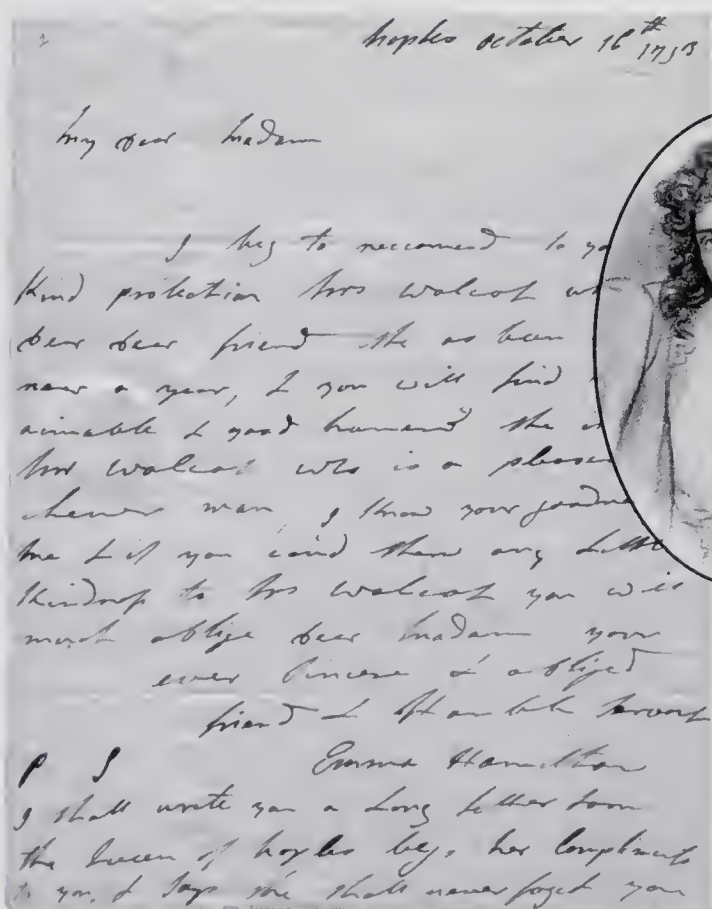 Naples october 16th
1793
My dear Madam
I beg to reccomend to yo
Kind protection Mrs Walcot w
dear dear friend she as been
near a year, & you will find
aimable & good humer'd she
Mrs Walcot who is a pleasen
clever man, I know your goodne
me & if you can'd shew any Little
Kindness to Mrs Walcot you will
much oblige dear Madam your
ever Sincere & obliged
friend & Humble Servant
Emma Hamilton
P S
I shall write you a Long Letter soon
the Queen of Naples begs her Compliments
to you, & says she shall never forget you